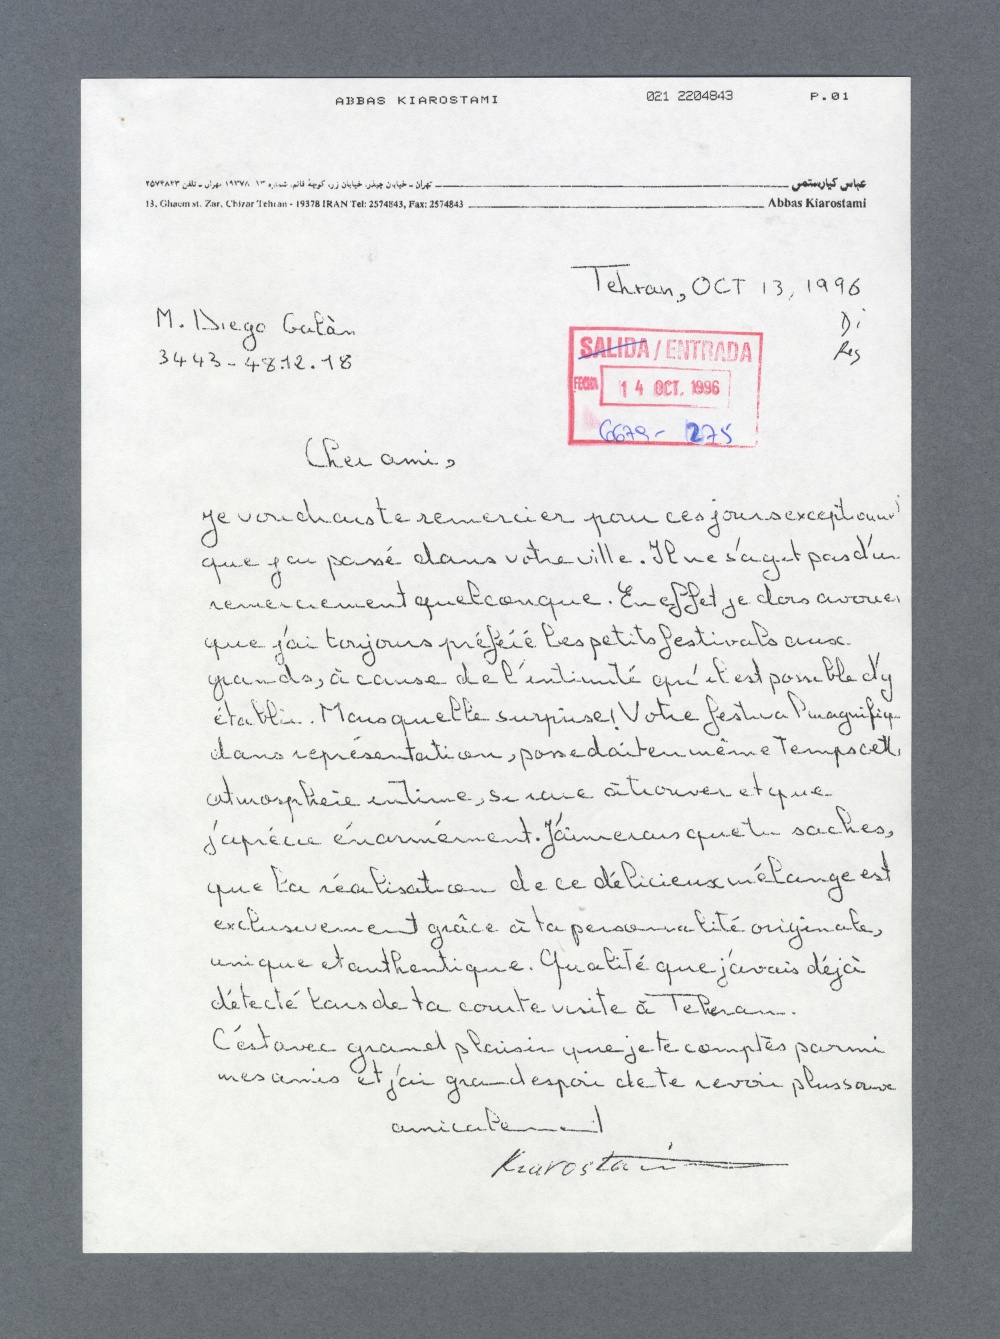 ABBAS KIAROSTAMI 021 2204843 P.01
عباس کیارستمی تهران ـ خیابان چیذر، خیابان زر، کوچهٔ قائم، شماره ۱۳ ۱۹۳۷۸ تهران ـ تلفن ۲۵۷۴۸۴۳
13, Ghaem st. Zar, Chizar Tehran - 19378 IRAN Tel: 2574843, Fax: 2574843 Abbas Kiarostami
Tehran, OCT 13, 1996
Di
Reg
M. Diego Galàn
3443-48.12.18
SALIDA / ENTRADA
FECHA 14 OCT. 1996
6679- 275
Cher ami,
je voudrais te remercier pour ces jours exceptionnels
que j'ai passé dans votre ville. Il ne s'agit pas d'un
remerciement quelconque. En effet je dois avouer
que j'ai toujours préféré les petits festivals aux
grands, à cause de l'intimité qu'il est possible d'y
établir. Mais quelle surprise! Votre festival magnifique
dans représentation, possedait en même temps cette
atmosphère intime, si rare à trouver et que
j'aprécie énormément. J'aimerais que tu saches,
que la réalisation de ce délicieux mélange est
exclusivement grâce à ta personnalité originale,
unique et authentique. Qualité que j'avais déjà
détecté lors de ta courte visite à Teheran.
C'est avec grand plaisir que je te comptes parmi
mes amis et j'ai grand espoir de te revoir plus souve
amicalement
Kiarostami